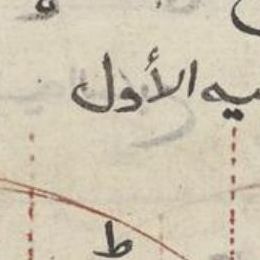 يه الأول
ط